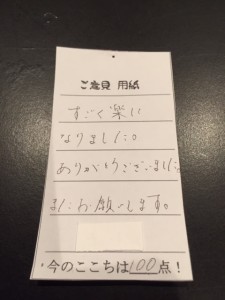 ご意見 用紙
すごく楽に
なりました。
ありがとうございました
またお願いします。
今のここちは100点！